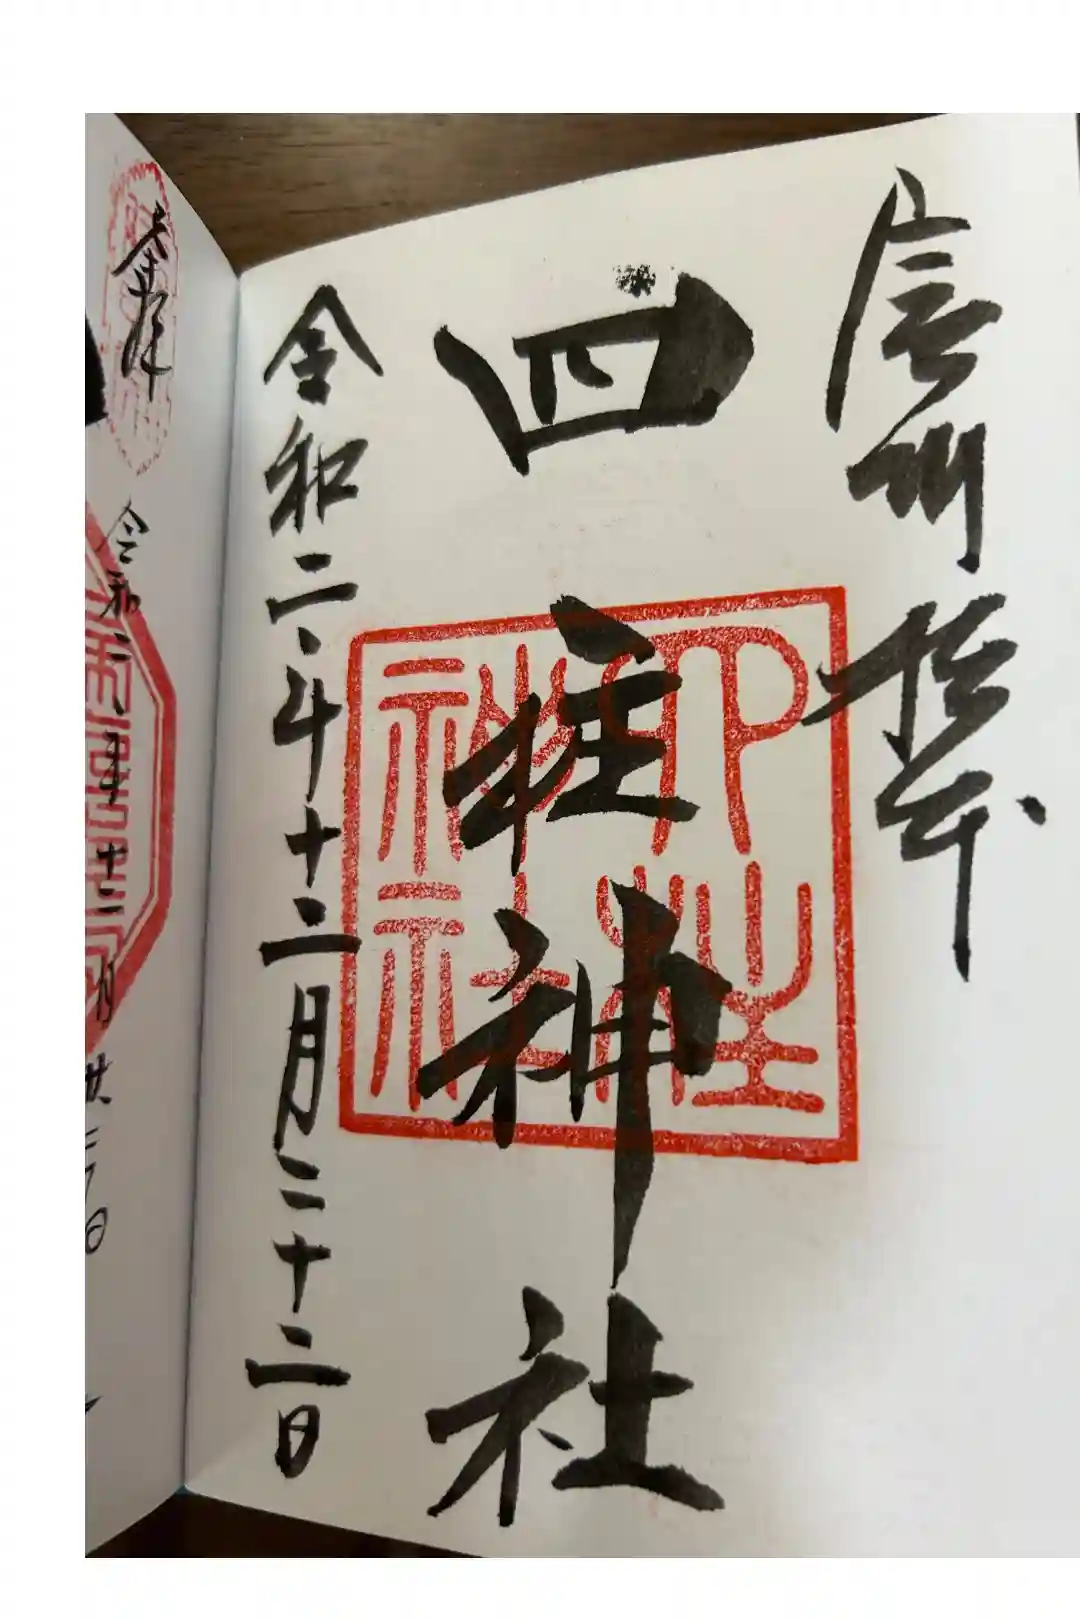 信州松本
四柱神社
令和二年十二月二十二日
四柱神社
奉拝
令和二年十二月廿二日